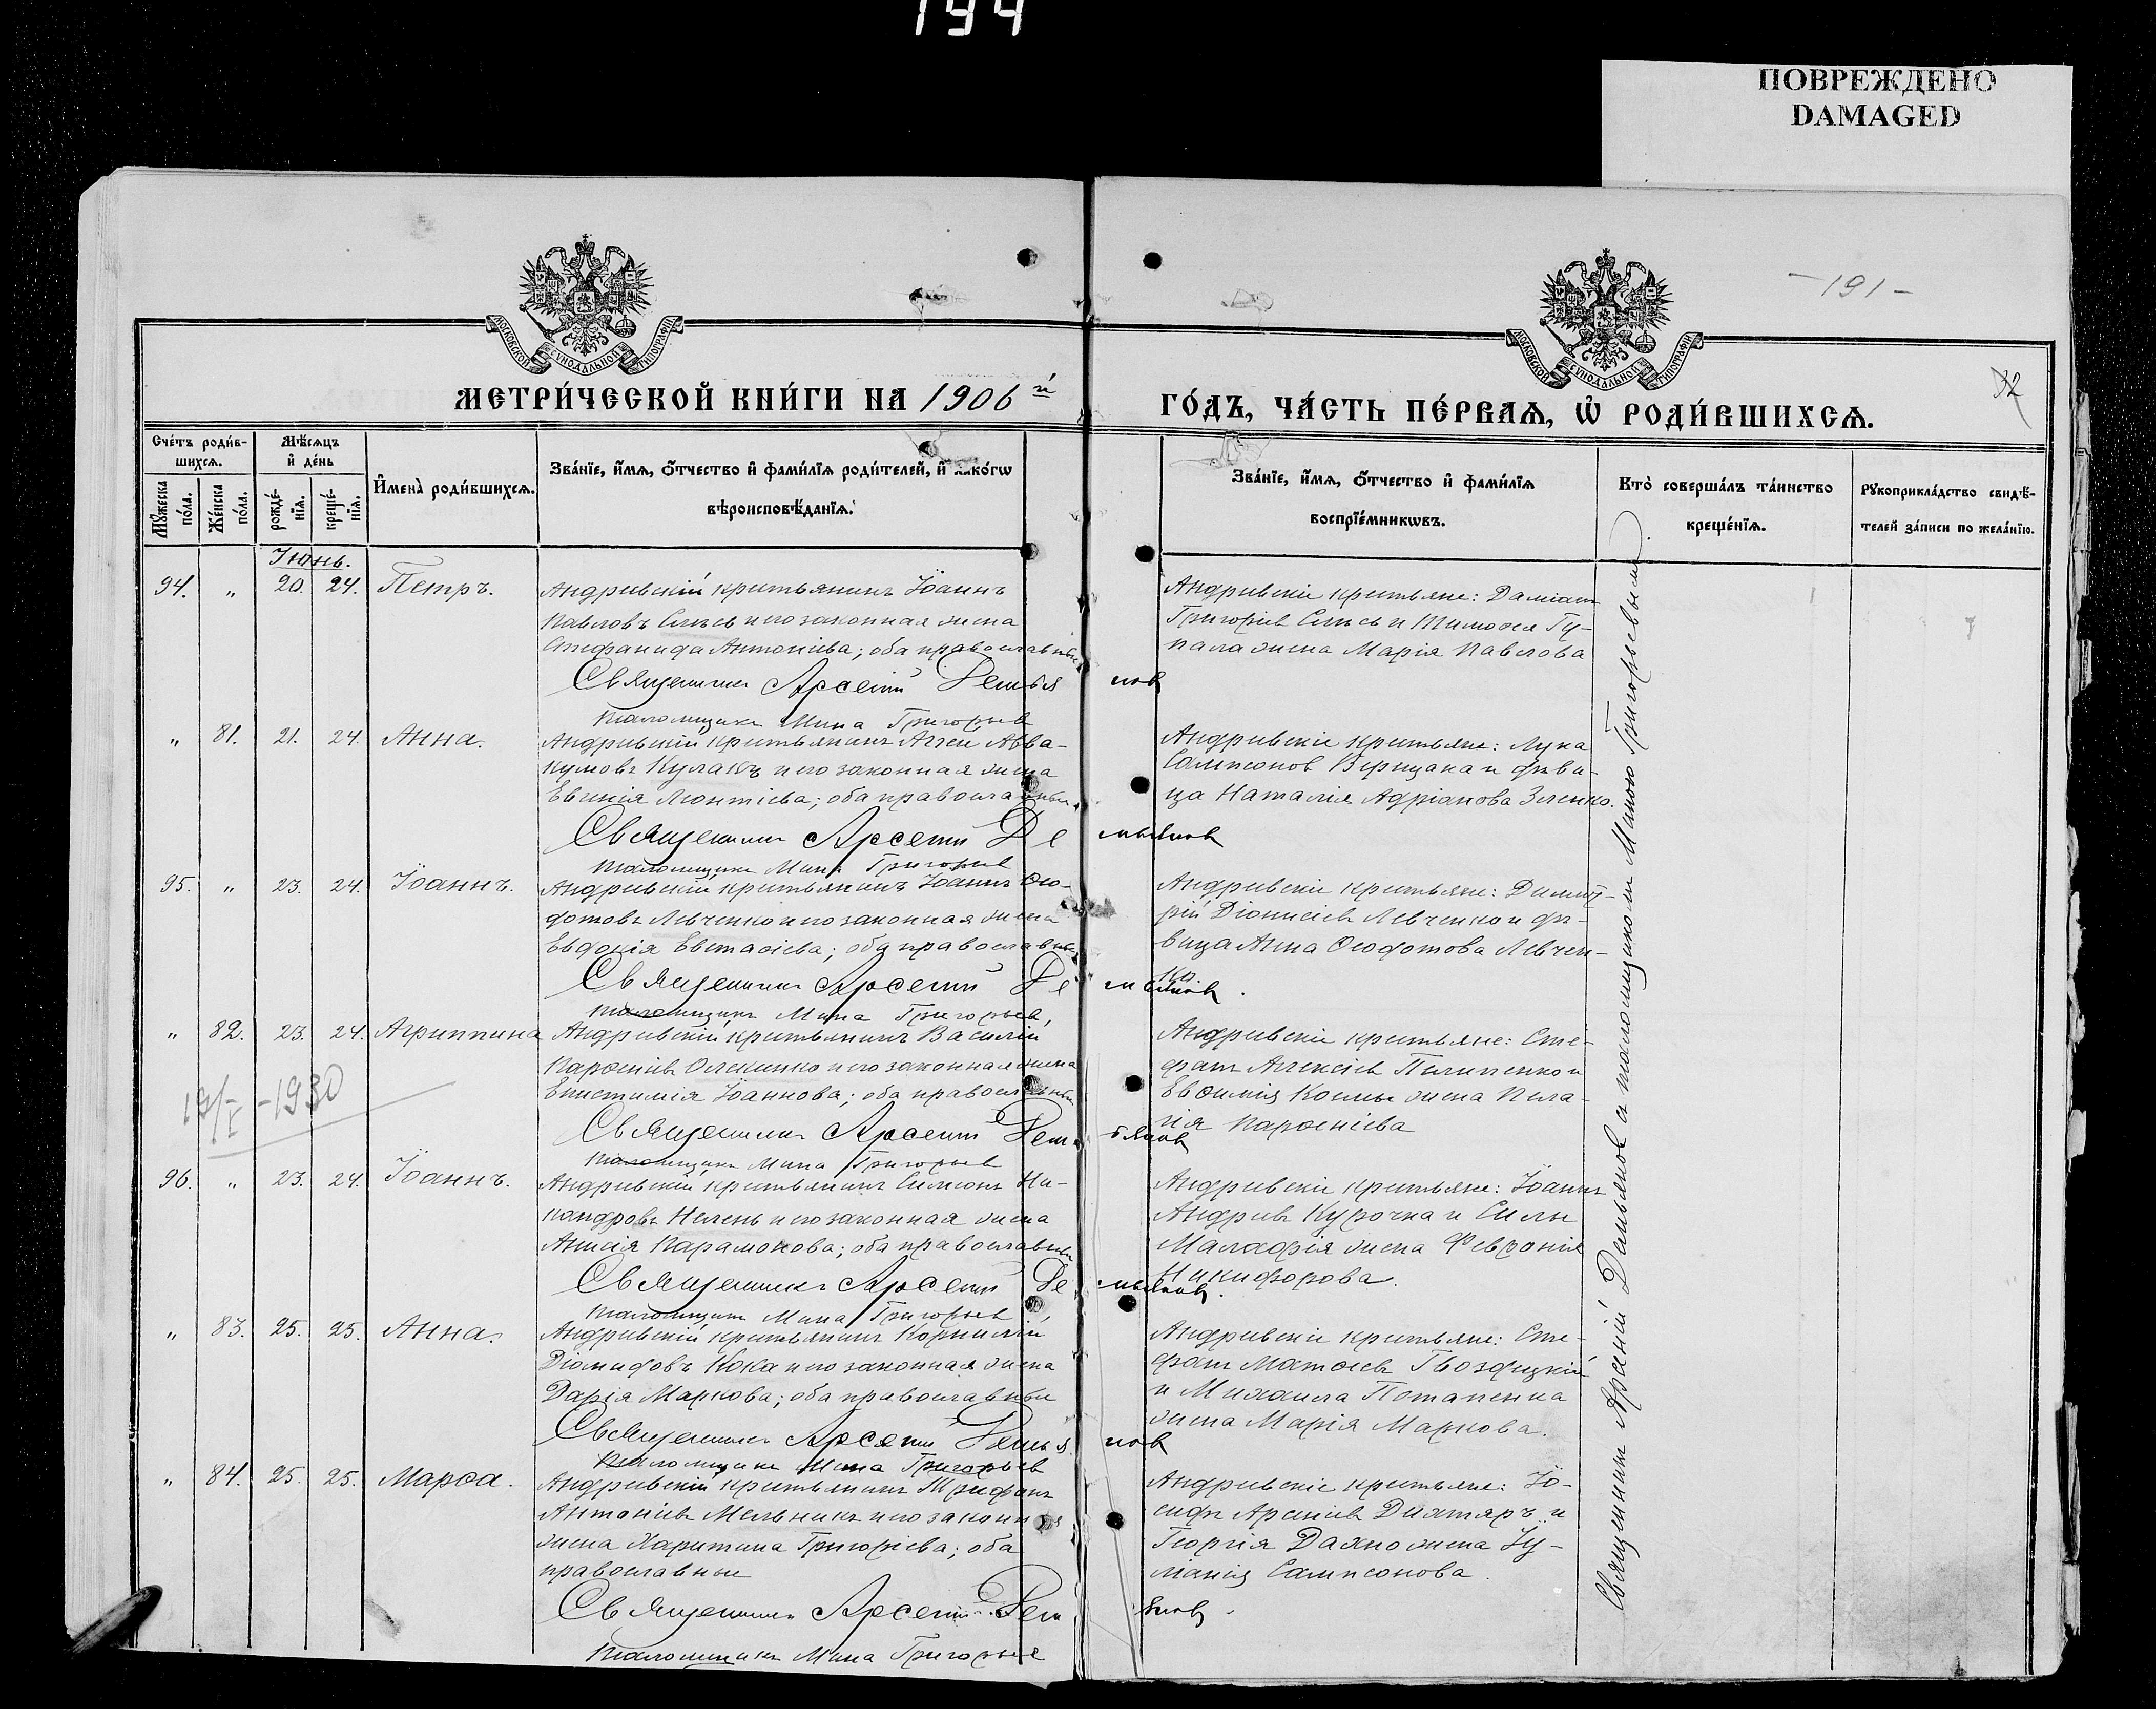 194
ПОВРЕЖДЕНО
DAMAGED
-191-
32
МОСКОВСКОЙ СѴНОДАЛЬНОЙ ТИПОГРАФІИ
МОСКОВСКОЙ СѴНОДАЛЬНОЙ ТИПОГРАФІИ
МЕТРИ́ЧЕСКОЙ КНИ́ГИ НА 1906 й
ГО́ДЪ, ЧА́СТЬ ПЕ́РВАѦ, Ѡ҆ РОДИ́ВШИХСѦ.
Сче́тъ роди́в-
шихсѧ.
Мѣ́сѧцъ
и҆ де́нь
Мꙋ́жеска по́ла.
Же́нска по́ла.
рожде́-
нїѧ.
креще́-
нїѧ.
И҆мена̀ роди́вшихсѧ.
Зва́нїе, и҆́мѧ, ѻ҆́тчество и҆ фами́лїѧ роди́телей, и҆ како́гѡ
вѣроисповѣ́данїѧ.
Зва́нїе, и҆́мѧ, ѻ҆́тчество и҆ фами́лїѧ
воспрїе́мникѡвъ.
Кто̀ соверша́лъ та́инство
креще́нїѧ.
Рꙋкоприкла́дство свидѣ́-
телей за́писи по жела́нїю.
Іюнь.
94. " 20. 24. Петръ.
Андреевскій крестьянинъ Іоаннъ
Павловъ и его законная жена
Стефанида Антоніева; оба православные
Священникъ Арсеній Демьянов
Псаломщикъ Мина Григорьев
Андреевскіе крестьяне: Даміанъ
Григоріевъ и Тимоѳея Гу-
пала жена Марія Павлова
" 81. 21. 24. Анна.
Андреевскій крестьянинъ Аггей Авва-
кумовъ Кулакъ и его законная жена
Евгенія Леонтіева; оба православные
Священникъ Арсеній Демьянов
Псаломщикъ Мина Григорьев
Андреевскіе крестьяне: Лука
Сампсоновъ Верещака и дѣви-
ца Наталія Адріанова Зеленко.
95. " 23. 24. Іоаннъ.
Андреевскій крестьянинъ Іоаннъ Ѳео-
дотовъ Левченко и его законная жена
Евдокія Евстаѳіева; оба православные
Священникъ Арсеній Демьянов.
Псаломщикъ Мина Григорьев
Андреевскіе крестьяне: Димит-
рій Діонисіевъ Левченко и дѣ-
вица Анна Ѳеодотова Левчен-
ко.
" 82. 23. 24. Агриппина
Андреевскій крестьянинъ Василій
Парѳеніевъ Олексенко и его законная жена
Епистимія Іоаннова; оба православные
Священникъ Арсеній Демьянов
Псаломщикъ Мина Григорьев
Андреевскіе крестьяне: Сте-
фанъ Алексіевъ Пилипенко и
Евѳимія Кошы жена Пела-
гія Парѳеніева
-1930
96. " 23. 24. Іоаннъ.
Андреевскій крестьянинъ Симеонъ Ни-
кандровъ Нелень и его законная жена
Анисія Парамонова; оба православные
Священникъ Арсеній Демьянов.
Псаломщикъ Мина Григорьев
Андреевскіе крестьяне: Іоаннъ
Андреевъ Курочка и Силы
Малафія жена Февронія
Никифорова.
" 83. 25. 25. Анна.
Андреевскій крестьянинъ Корнилій
Діомидовъ Кока и его законная жена
Дарія Маркова; оба православные
Священникъ Арсеній Демьянов
Псаломщикъ Мина Григорьев
Андреевскіе крестьяне: Сте-
фанъ Матѳіевъ Гвоздицкій
и Михаила Потапенка
жена Марія Маркова.
" 84. 25. 25. Марѳа.
Андреевскій крестьянинъ Трифонъ
Антоніевъ Мельникъ и его законная
жена Харитина Григоріева; оба
православные
Священникъ Арсеній Демьянов.
Псаломщикъ Мина Григорьев
Андреевскіе крестьяне: Іо-
сифъ Арсеніевъ Дихтяръ и
Георгія Дахно жена Іу-
ліанія Сампсонова.
Священникъ Арсеній Демьянов а псаломщиком Миною Григорьевым.